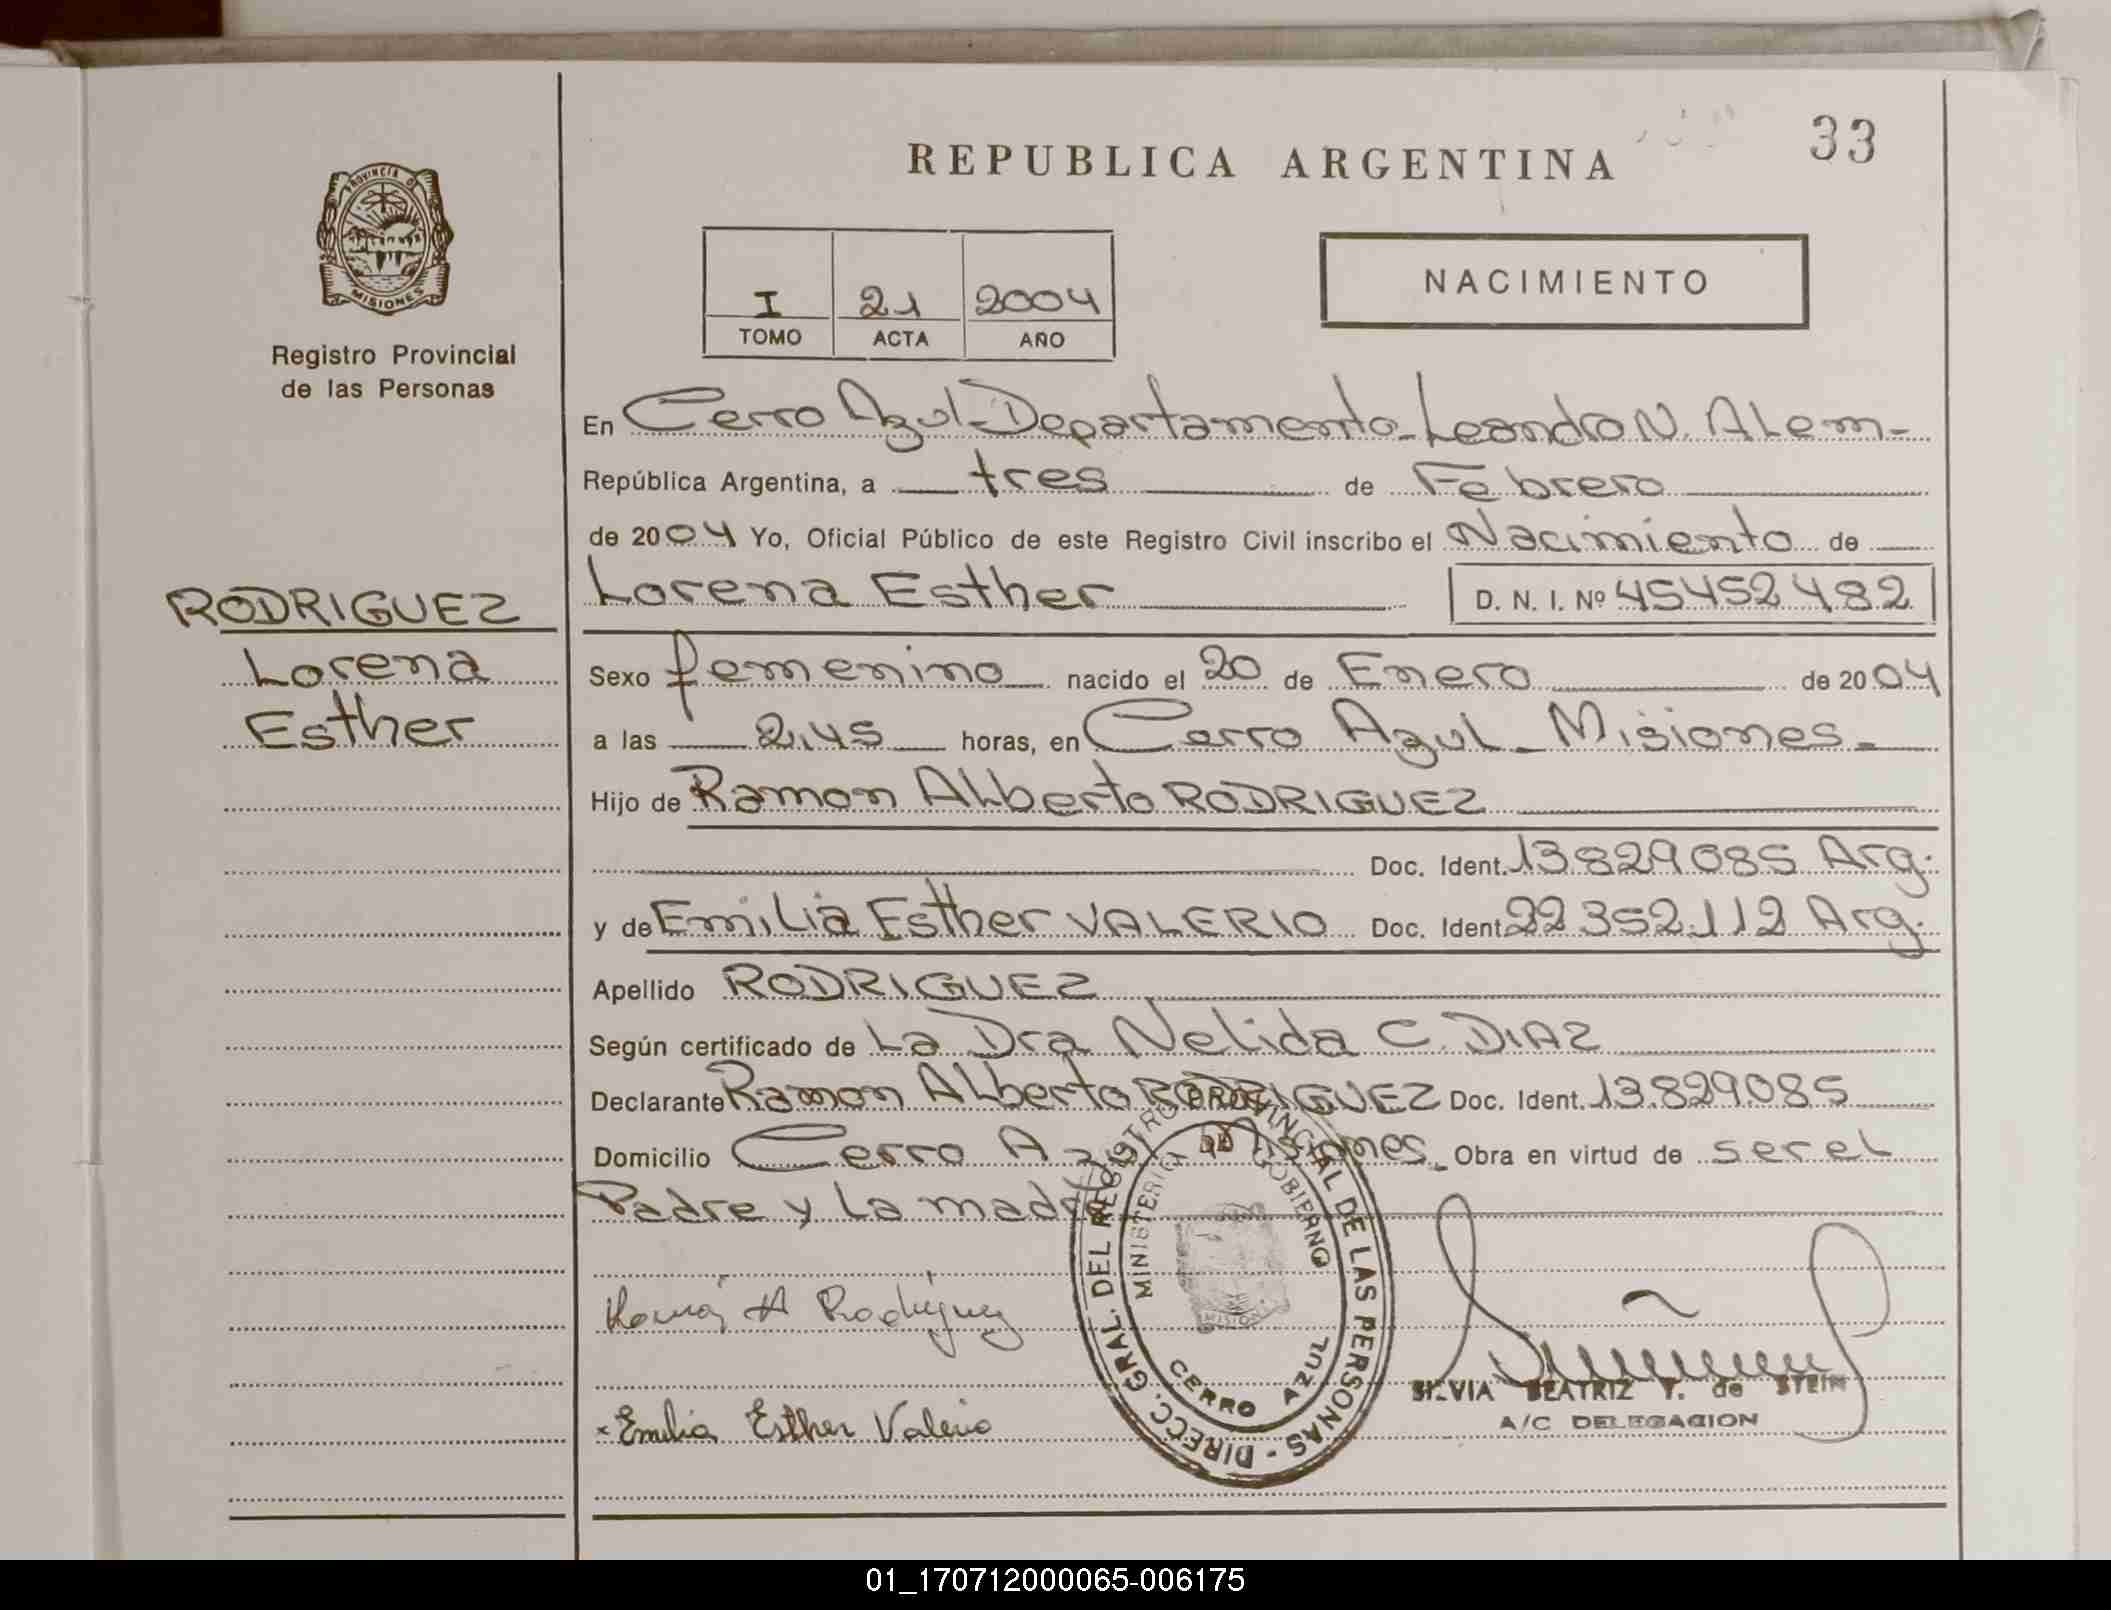 REPUBLICA ARGENTINA
33
PROVINCIA DE
MISIONES
Registro Provincial
de las Personas
I 21 2004
TOMO ACTA AÑO
NACIMIENTO
En Cerro Azul-Departamento-Leandro N. ALem-
República Argentina, a tres de Febrero
de 2004 Yo, Oficial Público de este Registro Civil inscribo el Nacimiento de
Lorena Esther D. N. I. Nº 45452482
RODRIGUEZ
Lorena
Esther
Sexo femenino nacido el 20 de Enero de 2004
a las 2,45 horas, en Cerro Azul - Misiones-
Hijo de Ramon ALberto RODRIGUEZ
Doc. Ident. 13.829.085 Arg.
y de EmiLia Esther VALERIO Doc. Ident. 22.352.112 Arg.
Apellido RODRIGUEZ
Según certificado de La Dra Nelida C. DIAZ
Declarante Ramon ALberto RODRIGUEZ Doc. Ident. 13.829.085
Domicilio Cerro Azul Misiones. Obra en virtud de ser el
Padre y La madre
Ramón A Rodriguez
Emilia Esther Valerio
DIRECC. GRAL. DEL REGISTRO PROVINCIAL DE LAS PERSONAS -
MINISTERIO DE GOBIERNO
MISIONES
CERRO AZUL
SILVIA BEATRIZ Y. de STEIN
A/C DELEGACION
01_170712000065-006175